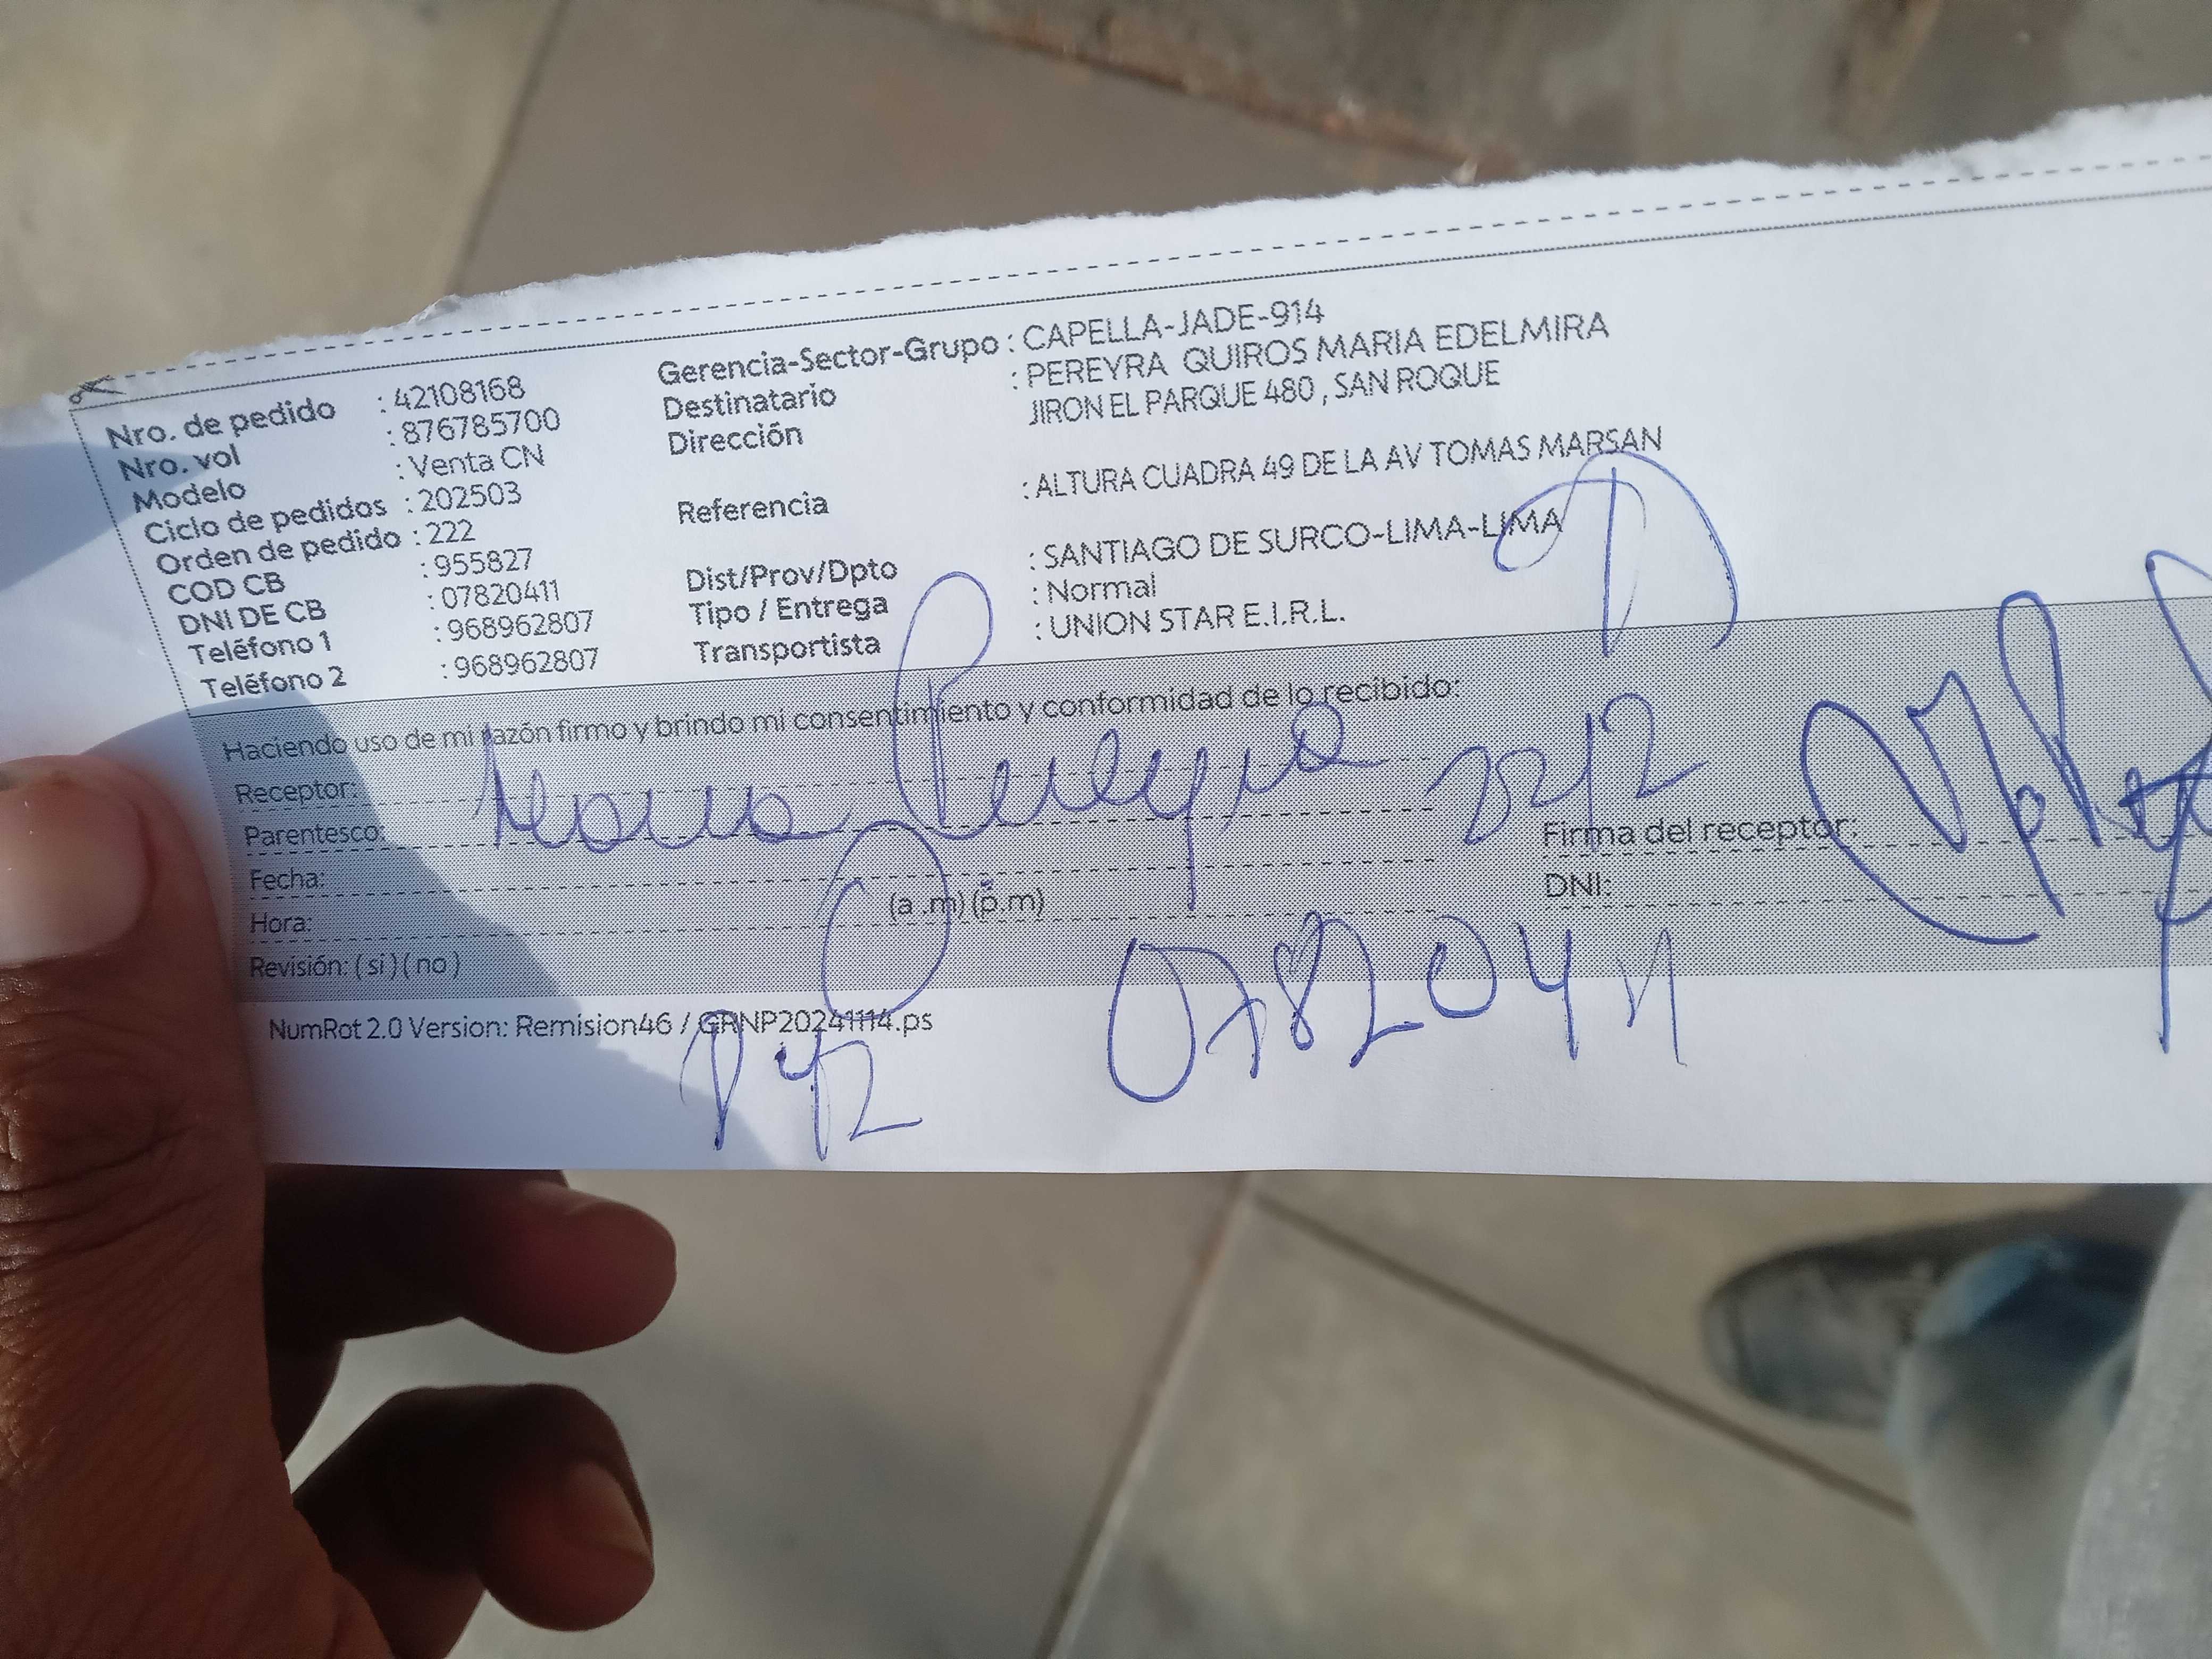 Nro. de pedido : 42108168
Nro. vol : 876785700
Modelo : Venta CN
Ciclo de pedidos : 202503
Orden de pedido : 222
COD CB : 955827
DNI DE CB : 07820411
Teléfono 1 : 968962807
Teléfono 2 : 968962807
Gerencia-Sector-Grupo : CAPELLA-JADE-914
Destinatario : PEREYRA QUIROS MARIA EDELMIRA
Dirección JIRON EL PARQUE 480 , SAN ROQUE
Referencia : ALTURA CUADRA 49 DE LA AV TOMAS MARSAN
Dist/Prov/Dpto : SANTIAGO DE SURCO-LIMA-LIMA
Tipo / Entrega : Normal
Transportista : UNION STAR E.I.R.L.
Haciendo uso de mi razón firmo y brindo mi consentimiento y conformidad de lo recibido:
Receptor: Maria Pereyra
Parentesco:
Fecha:
Hora: (a .m) (p.m)
Revisión: ( si ) ( no )
Firma del receptor:
DNI:
07820411
NumRot 2.0 Version: Remision46 / GRNP20241114.ps